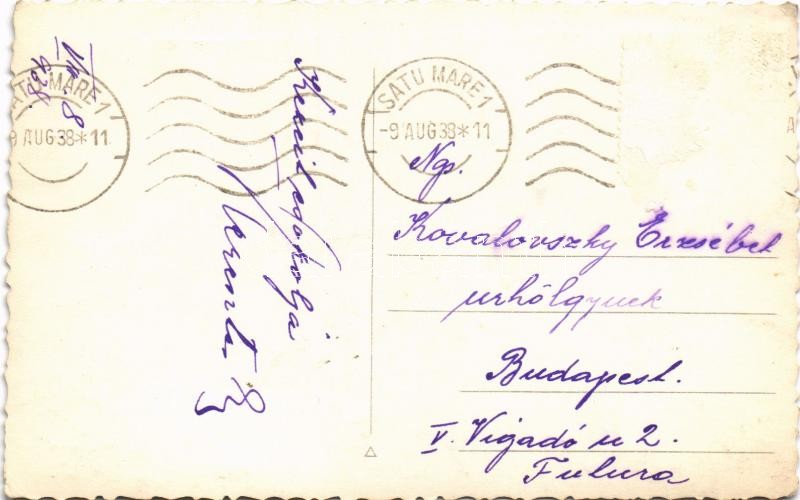 VIII. 8
938.
SATU MARE 1
-9 AUG 38 * 11
SATU MARE 1
-9 AUG 38 * 11
Kezeit csókolja
Ng.
Kovalovszky Erzsébet
urhölgynek
Budapest.
V. Vigadó u 2.
Futura